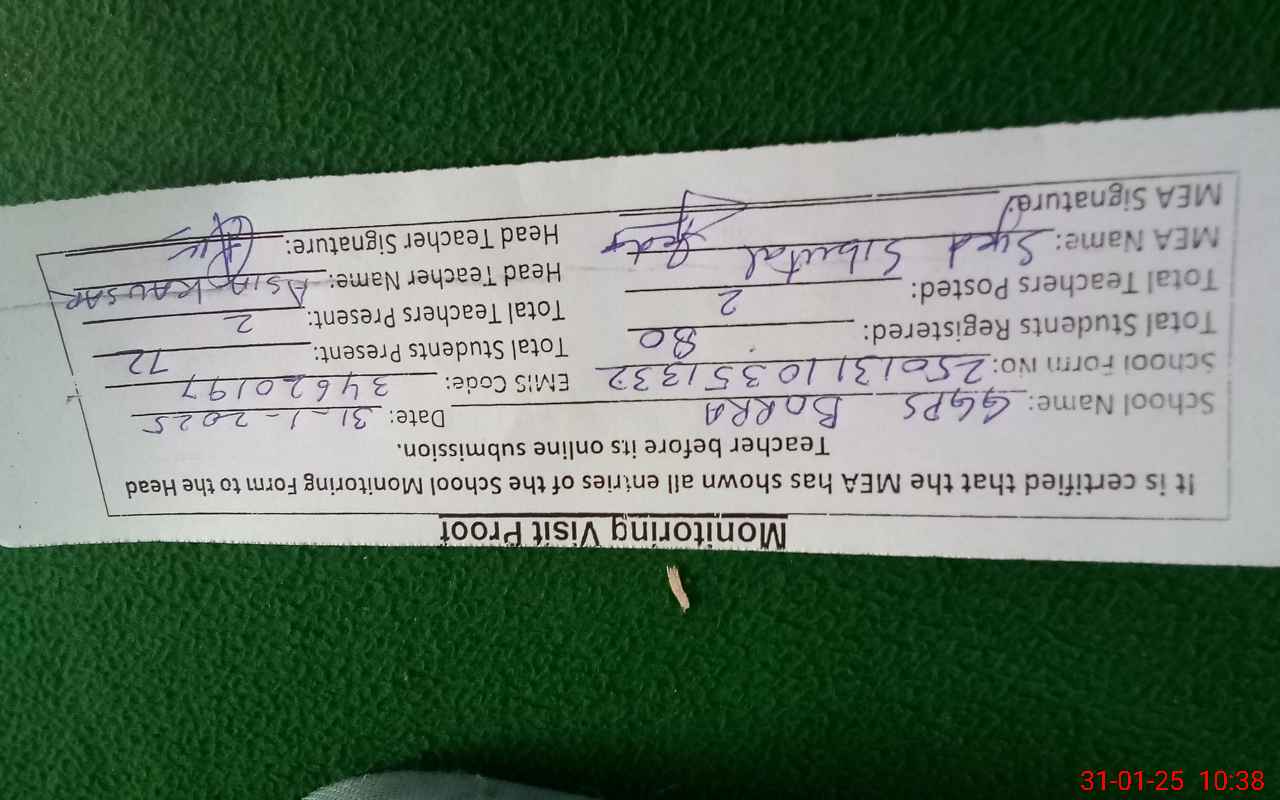 Monitoring Visit Proof
It is certified that the MEA has shown all entries of the School Monitoring Form to the Head
Teacher before its online submission.
School Name: GGPS BORRA Date: 31-1-2025
School Form No: 25013110351332 EMIS Code: 34620197
Total Students Registered: 80 Total Students Present: 72
Total Teachers Posted: 2 Total Teachers Present: 2
MEA Name: Syed Head Teacher Name: ASIA KAUSAR
MEA Signature: Head Teacher Signature:
31-01-25 10:38